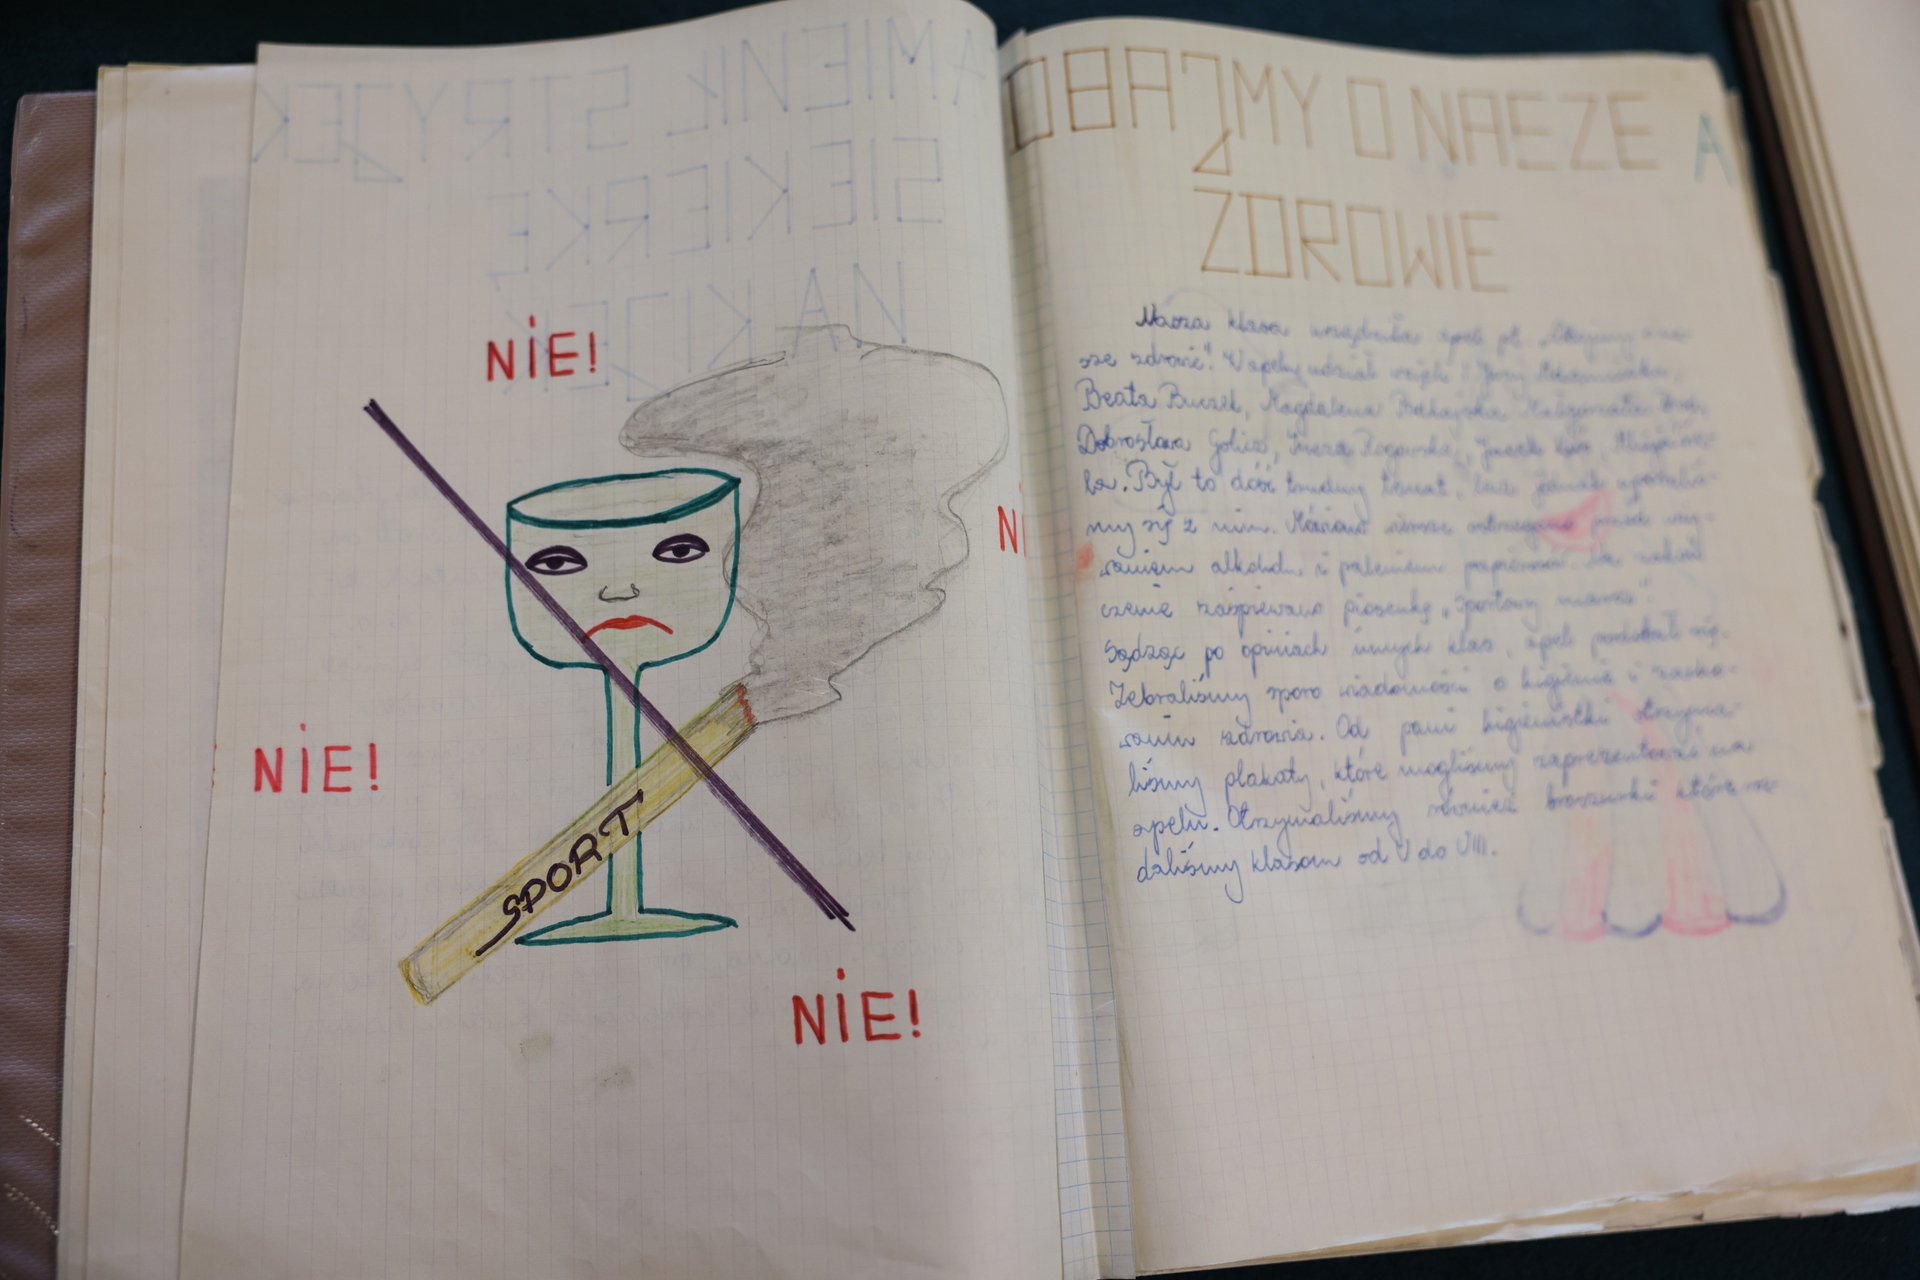 NIE!
NIE!
SPORT
NIE!
NI
DBAJMY O NASZE
ZDROWIE
A
Nasza klasa urządziła apel pt. „Dbajmy o na-
sze zdrowie". W apelu udział wzięli:
Beata Buczek, Magdalena Małgorzata
Dobrosława Jacek
ła. Był to dość trudny temat, lecz jednak uporaliś-
my się z nim. ostrzegano przed uży-
waniem alkoholu i paleniem papierosów. Na zakoń-
czenie zaśpiewano piosenkę „Sportowy
Sądząc po opiniach innych klas, apel podobał się.
Zebraliśmy sporo wiadomości o higienie i zacho-
waniu zdrowia. Od pani higienistki otrzyma-
liśmy plakaty, które mogliśmy zaprezentować na
apelu. Otrzymaliśmy również broszurki które roz-
daliśmy klasom od V do VIII.
AMIENIŁ STRYJEK
SIEKIERKĘ
NA KIJEK